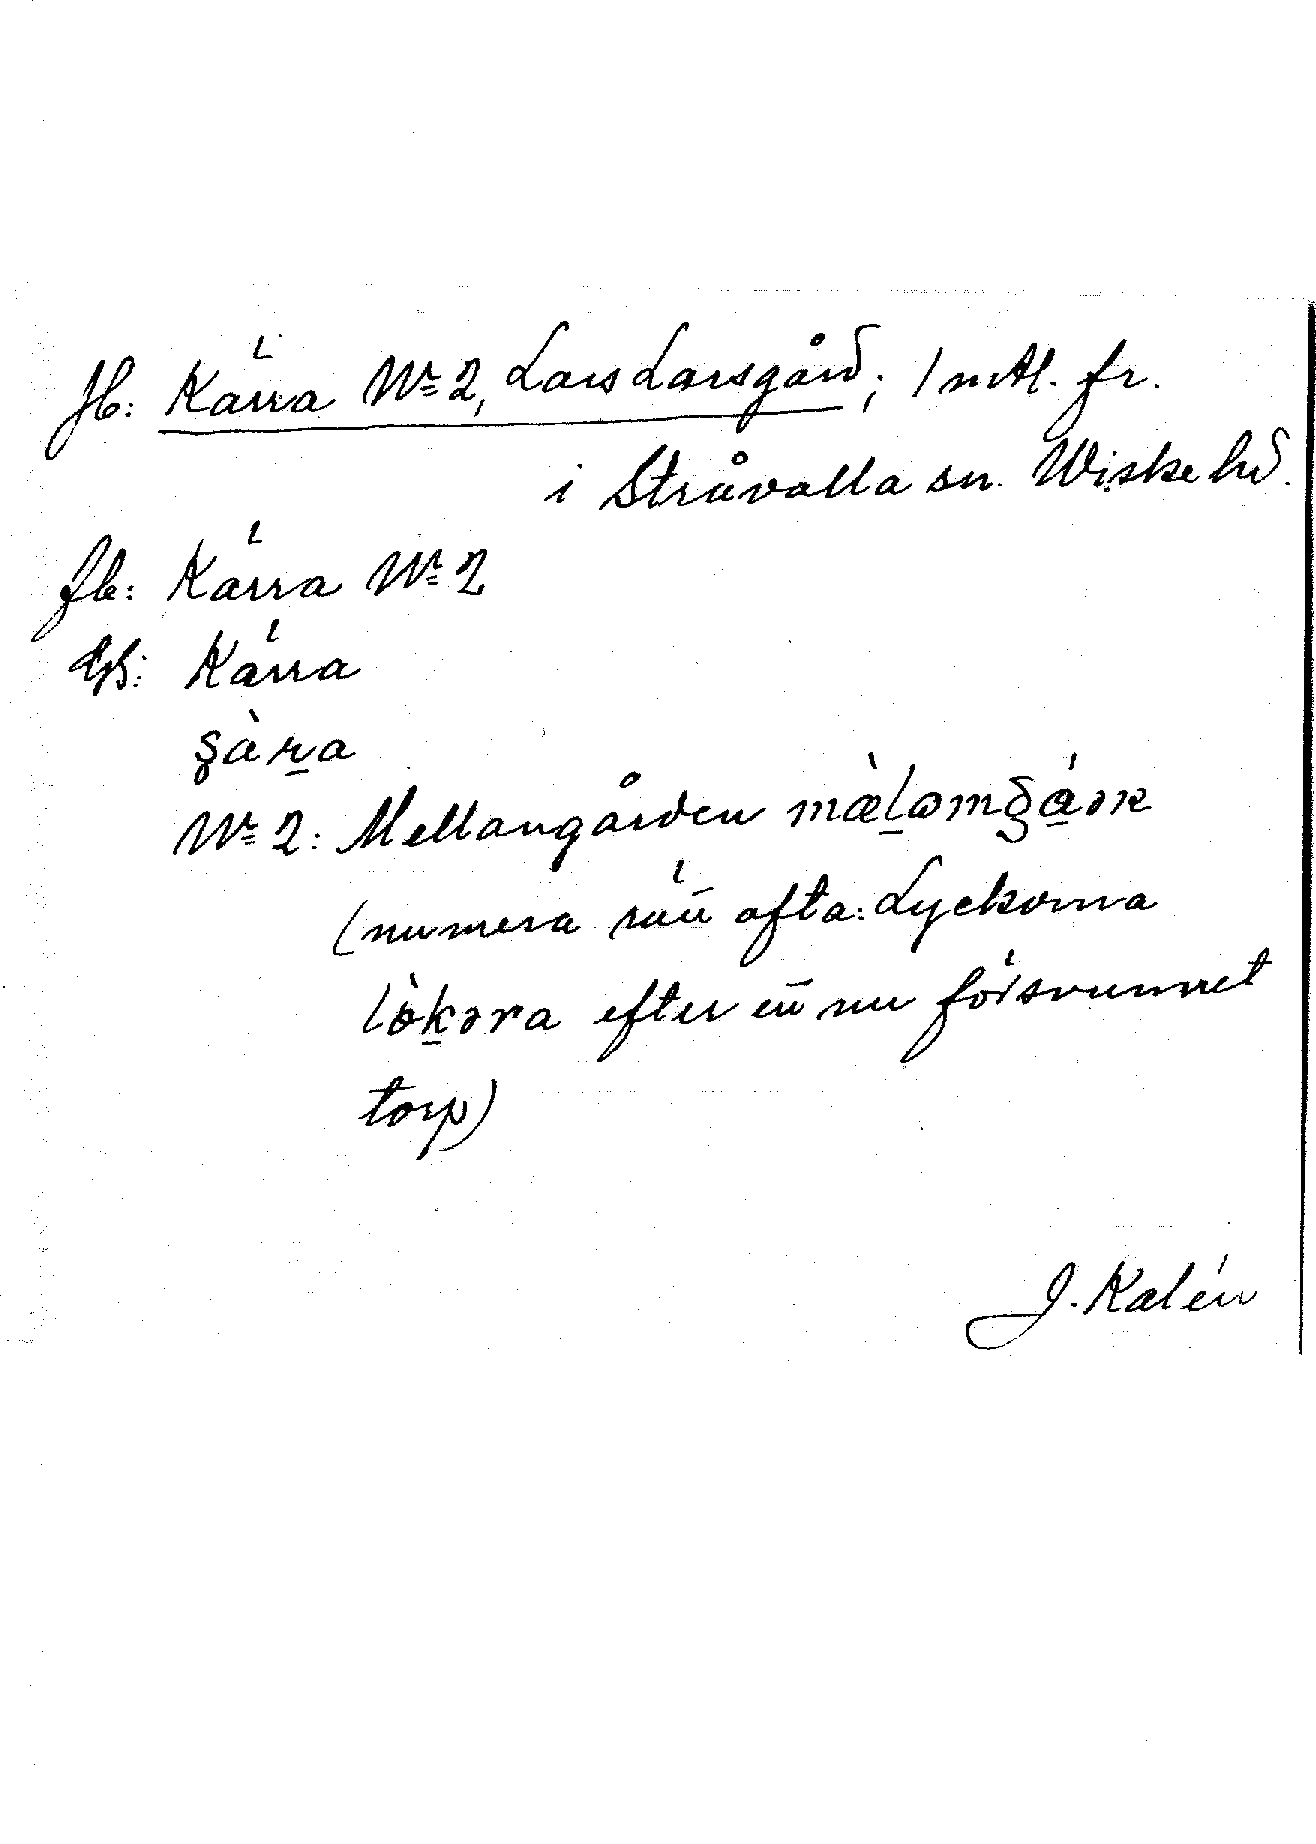 Jb: Kärra Nr 2, Lars Larsgård; 1 mtl. fr.
i Stråvalla sn. Wiske hd.
fb: Kärra Nr 2
Gs: Kärra
Nr 2: Mellangården
(numera rätt ofta: Lyckorna
efter ett nu försvunnet
torp)
J. Kalén